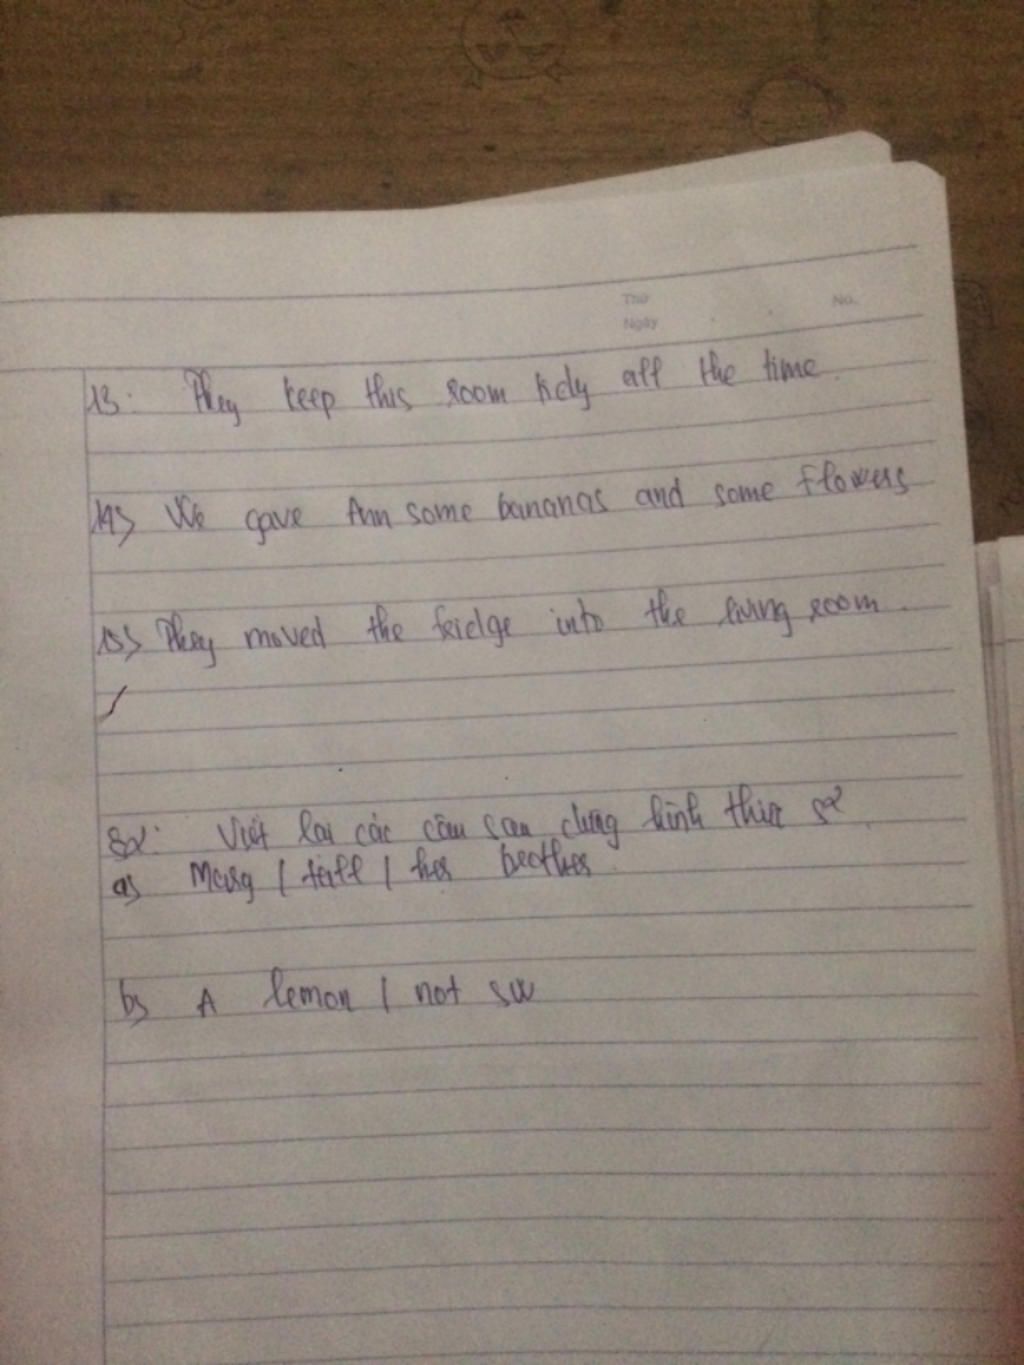 Thứ No.
Ngày
13: They keep this room tidy all the time.
14> We gave Ann some bananas and some flowers
15> They moved the fridge into the living room.
Viết lại các câu sau dùng hình thức s²
a> Mary / tall / her brother.
b> A lemon / not sw